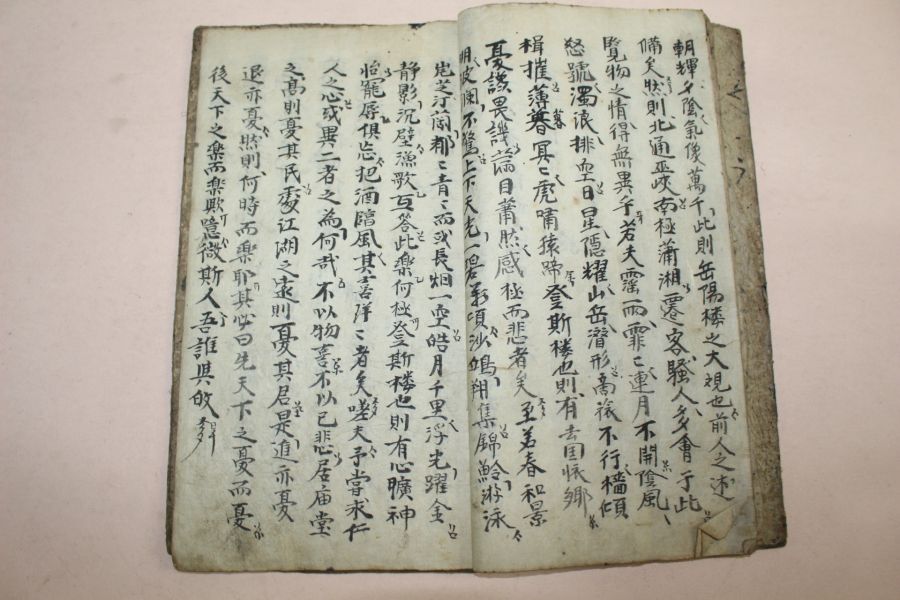 朝輝夕陰氣像萬千此則岳陽楼之大視也前人之述
備矣然則北通巫峽南極瀟湘遷客騷人多會于此
覧物之情得無異乎若夫霪雨霏〻連月不開陰風
怒號濁浪排空日星隠耀山岳潜形商旅不行檣傾
楫摧薄暮冥〻虎嘯猿啼登斯楼也則有去国懐郷
憂讒畏譏満目蕭然感極而悲者矣至若春和景
明波瀾不驚上下天光一碧萬頃沙鴎翔集錦鱗游泳
岸芷汀蘭郁〻青〻而或長烟一空皓月千里浮光躍金
静影沉壁漁歌互答此楽何極登斯楼也則有心曠神
怡寵辱俱忘把酒臨風其喜洋〻者矣嗟夫予甞求仁
人之心或異二者之為何哉不以物喜不以己悲居庙堂
之髙則憂其民處江湖之遠則憂其君是進亦憂
退亦憂然則何時而楽耶其必曰先天下之憂而憂
後天下之楽而楽歟噫微斯人吾誰與㱕